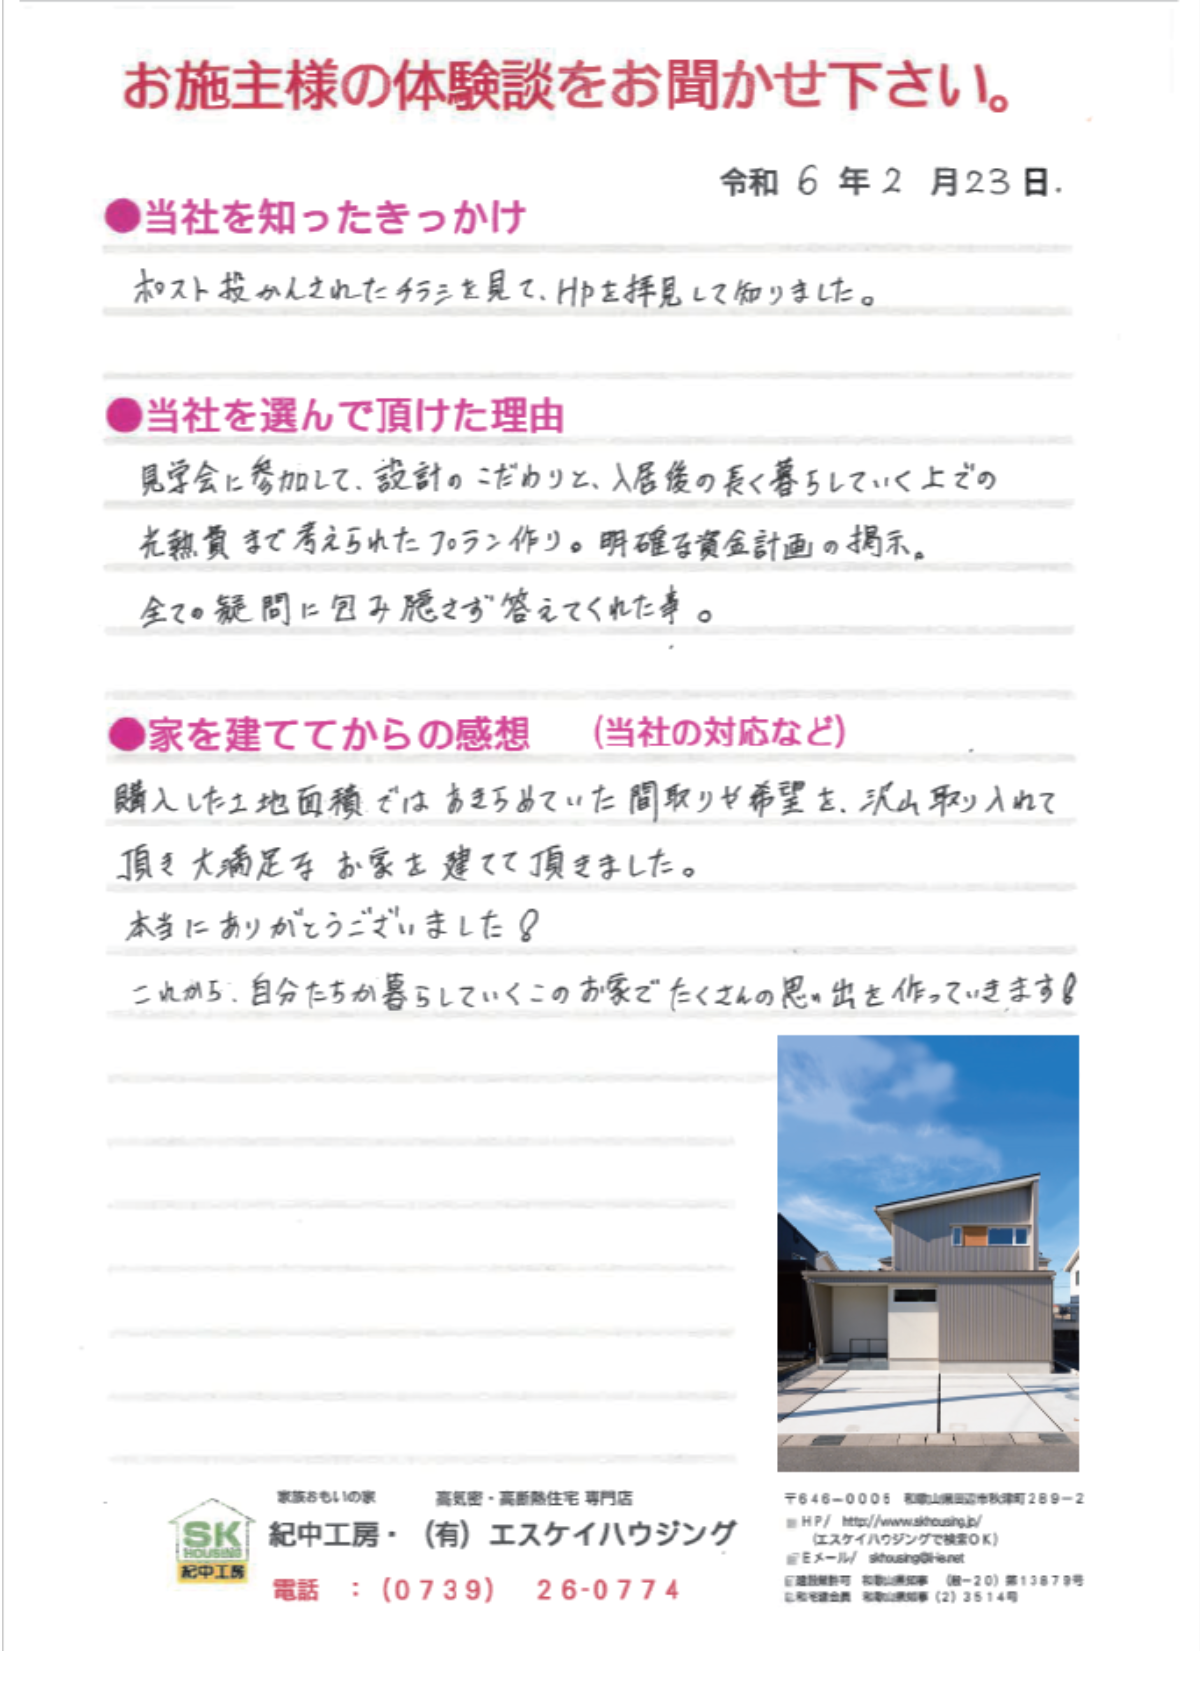 お施主様の体験談をお聞かせ下さい。
令和 6 年 2 月 23 日.
●当社を知ったきっかけ
ポスト投かんされたチラシを見て、HPを拝見して知りました。
●当社を選んで頂けた理由
見学会に参加して、設計のこだわりと、入居後の長く暮らしていく上での
光熱費まで考えられたプラン作り。明確な資金計画の掲示。
全ての疑問に包み隠さず答えてくれた事。
●家を建ててからの感想 (当社の対応など)
購入した土地面積ではあきらめていた間取りや希望を、沢山取り入れて
頂き大満足な お家を 建てて頂きました。
本当にありがとうございました!
これから、自分たちが暮らしていくこのお家でたくさんの思い出を作っていきます!
家族おもいの家 高気密・高断熱住宅 専門店
紀中工房・(有)エスケイハウジング
電話 :(0739) 26-0774
SK
HOUSING
紀中工房
〒646-0005 和歌山県田辺市秋津町289-2
HP/ http://www.skhousing.jp/
(エスケイハウジングで検索OK)
Eメール/
建設業許可 和歌山県知事 (般-20)第13879号
和歌山県知事(2)3514号